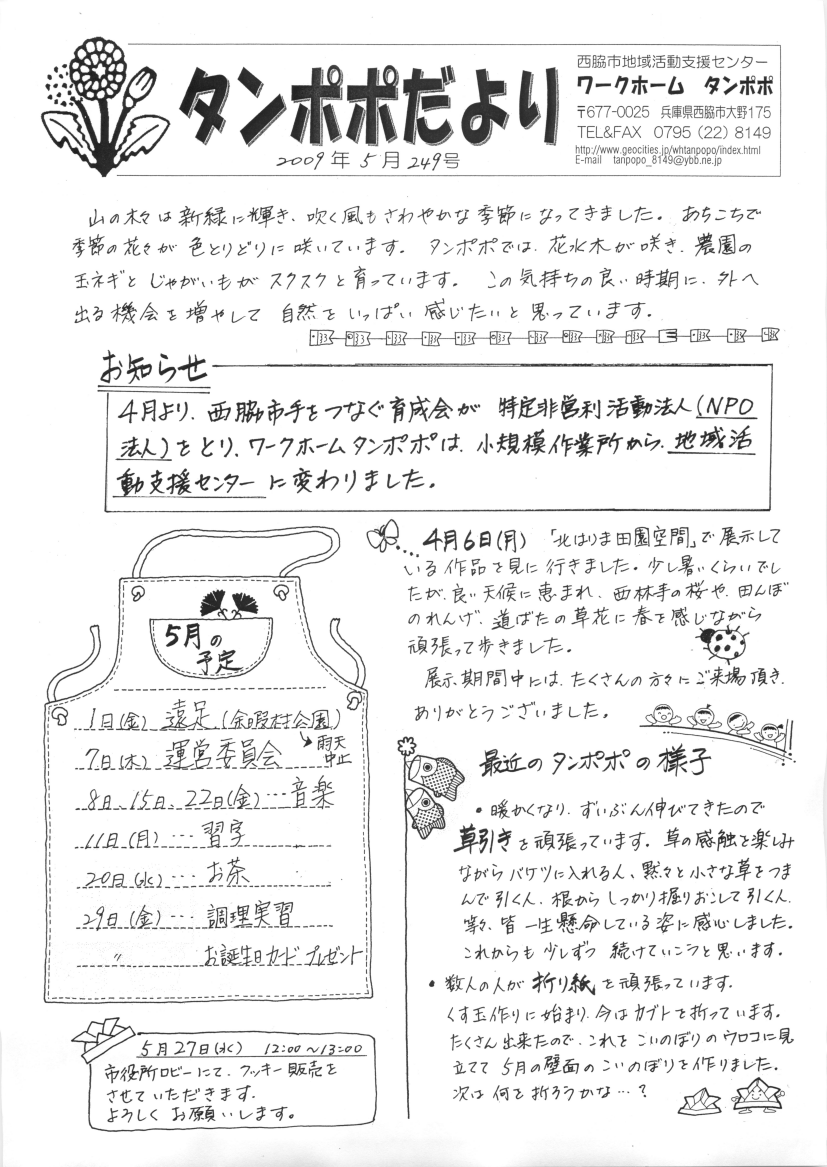 西脇市地域活動支援センター
ワークホーム タンポポ
〒677-0025 兵庫県西脇市大野175
TEL&FAX 0795 (22) 8149
http://www.geocities.jp/whtanpopo/index.html
E-mail tanpopo_8149@ybb.ne.jp
タンポポだより
2009年5月249号
山の木々は新緑に輝き、吹く風もさわやかな季節になってきました。あちこちで
季節の花々が色とりどりに咲いています。タンポポでは、花水木が咲き、農園の
玉ネギとじゃがいもがスクスクと育っています。この気持ちの良い時期に、外へ
出る機会を増やして自然をいっぱい感じたいと思っています。
お知らせ
4月より、西脇市手をつなぐ育成会が特定非営利活動法人(NPO
法人)をとり、ワークホームタンポポは、小規模作業所から、地域活
動支援センターに変わりました。
5月の
予定
1日(金) 遠足(余暇村公園)
雨天
中止
7日(木) 運営委員会
8日、15日、22日(金)…音楽
11日(月)…習字
20日(水)…お茶
29日(金)…調理実習
〃 お誕生日カードプレゼント
5月27日(水) 12:00~13:00
市役所ロビーにて、クッキー販売を
させていただきます。
よろしくお願いします。
…4月6日(月)「北はりま田園空間」で展示して
いる作品を見に行きました。少し暑いくらいでし
たが、良い天候に恵まれ、西林寺の桜や、田んぼ
のれんげ、道ばたの草花に春を感じながら
頑張って歩きました。
展示期間中には、たくさんの方々にご来場頂き、
ありがとうございました。
最近のタンポポの様子
・暖かくなり、ずいぶん伸びてきたので
草引きを頑張っています。草の感触を楽しみ
ながらバケツに入れる人、黙々と小さな草をつま
んで引く人、根からしっかり掘りおこして引く人、
等々、皆一生懸命している姿に感心しました。
これからも少しずつ続けていこうと思います。
・数人の人が折り紙を頑張っています。
くす玉作りに始まり、今はカブトを折っています。
たくさん出来たので、これをこいのぼりのウロコに見
立てて5月の壁面のこいのぼりを作りました。
次は何を折ろうかな…?